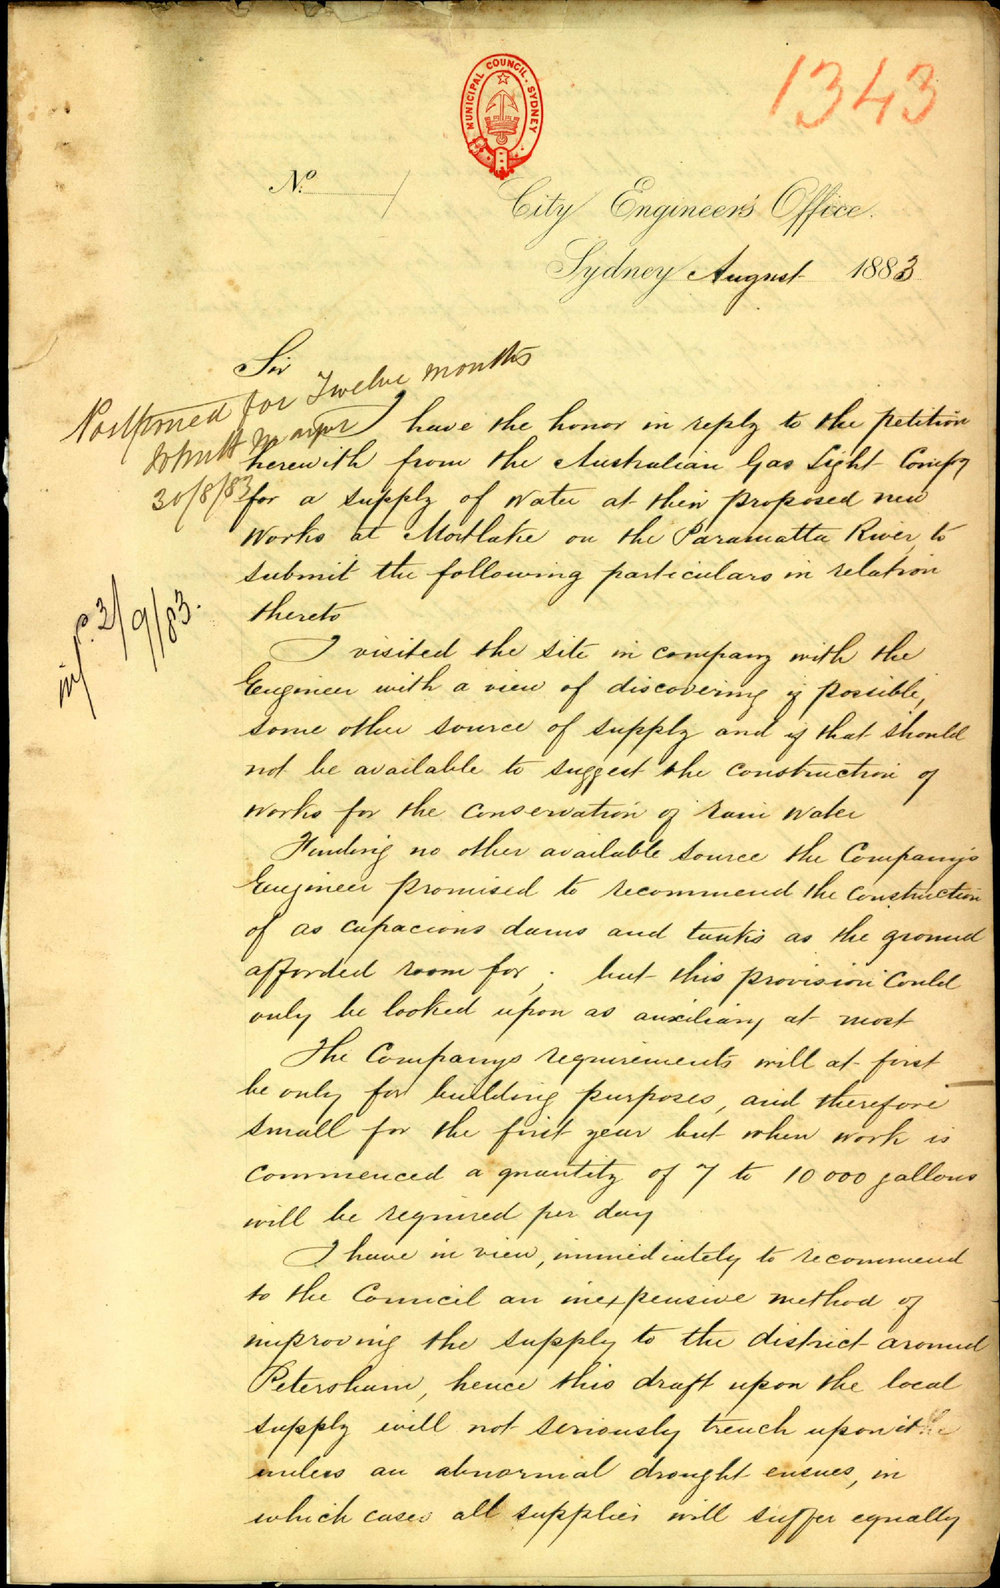 1343
MUNICIPAL COUNCIL. SYDNEY
No.
City Engineer's Office.
Sydney August 1883
Sir
Postponed for Twelve months
30/8/83
inf. 3/9/83.
I have the honor in reply to the petition
herewith from the Australian Gas Light Compy
for a supply of water at their proposed new
Works at Mortlake on the Paramatta River, to
submit the following particulars in relation
thereto
I visited the site in company with the
Engineer with a view of discovering if possible,
some other source of supply and if that should
not be available to suggest the construction of
works for the conservation of rain water
Finding no other available source the Company's
Engineer promised to recommend the construction
of as capacious dams and tanks as the ground
afforded room for; but this provision could
only be looked upon as auxiliary at most
The Companys requirements will at first
be only for building purposes, and therefore
small for the first year but when work is
commenced a quantity of 7 to 10 000 gallons
will be required per day
I have in view, immediately to recommend
to the Council an inexpensive method of
improving the supply to the district around
Petersham, hence this draft upon the local
supply will not seriously trench upon it
unless an abnormal drought ensues, in
which case all supplies will suffer equally